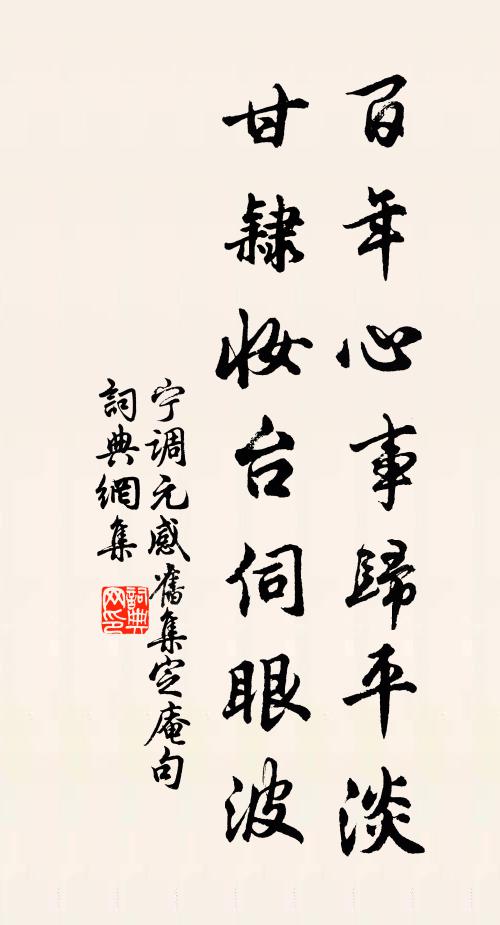 百年心事歸平淡
甘隸妝台伺眼波
宁调元感舊集定庵句
詞典網集
詞典网印